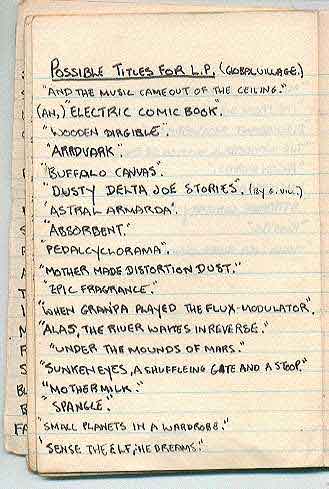 POSSIBLE TITLES FOR L.P. (GLOBAL VILLAGE.)
"AND THE MUSIC CAME OUT OF THE CEILING."
(AN,) "ELECTRIC COMIC BOOK".
"WOODEN DIRGIBLE".
"ARRDVARK".
"BUFFALO CANVAS".
"DUSTY DELTA JOE STORIES". (BY G. VILL.)
"ASTRAL ARMARDA".
"ABSORBENT".
"PEDALCYCLORAMA".
"MOTHER MADE DISTORTION DUST."
"EPIC FRAGRANCE".
"WHEN GRANPA PLAYED THE FLUX-MODULATOR".
"ALAS, THE RIVER WAITES IN REVERSE."
"UNDER THE MOUNDS OF MARS."
"SUNKEN EYES, A SHUFFLEING GATE AND A STOOP."
"MOTHERMILK."
"SPANGLE."
"SMALL PLANETS IN A WARDROBE."
"SENSE THE ELF, HE DREAMS."